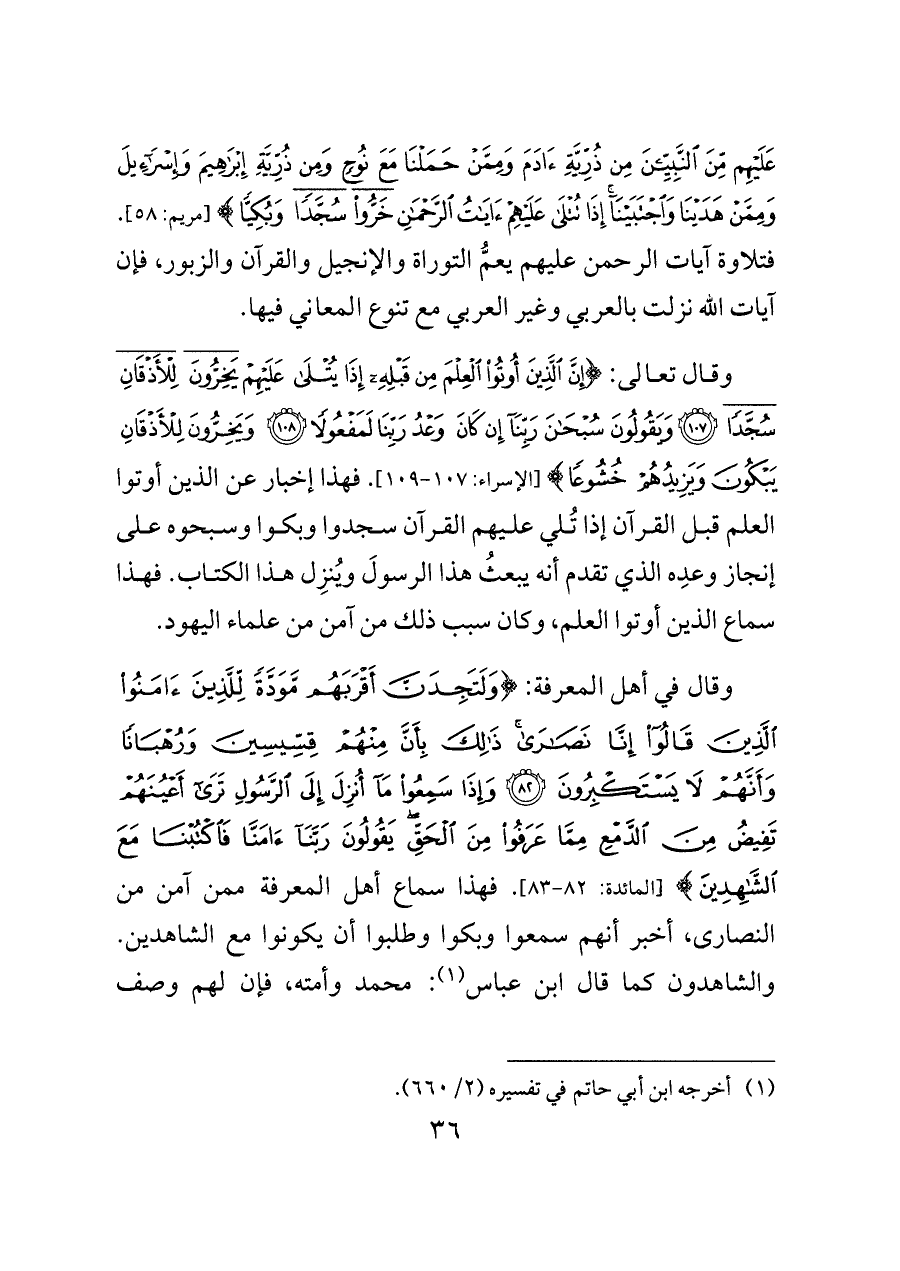 عَلَيْهِم مِّنَ ٱلنَّبِيِّـۧنَ مِن ذُرِّيَّةِ ءَادَمَ وَمِمَّنْ حَمَلْنَا مَعَ نُوحٍ وَمِن ذُرِّيَّةِ إِبْرَٰهِيمَ وَإِسْرَٰٓءِيلَ
وَمِمَّنْ هَدَيْنَا وَٱجْتَبَيْنَآ ۚ إِذَا تُتْلَىٰ عَلَيْهِمْ ءَايَٰتُ ٱلرَّحْمَٰنِ خَرُّوا۟ سُجَّدًا وَبُكِيًّا ﴾ [مريم: ٥٨].
فتلاوة آيات الرحمن عليهم يعمُّ التوراة والإنجيل والقرآن والزبور، فإن
آيات الله نزلت بالعربي وغير العربي مع تنوع المعاني فيها.
وقال تعالى: ﴿إِنَّ ٱلَّذِينَ أُوتُوا۟ ٱلْعِلْمَ مِن قَبْلِهِۦٓ إِذَا يُتْلَىٰ عَلَيْهِمْ يَخِرُّونَ لِلْأَذْقَانِ
سُجَّدًا ﴿١٠٧﴾ وَيَقُولُونَ سُبْحَٰنَ رَبِّنَآ إِن كَانَ وَعْدُ رَبِّنَا لَمَفْعُولًا ﴿١٠٨﴾ وَيَخِرُّونَ لِلْأَذْقَانِ
يَبْكُونَ وَيَزِيدُهُمْ خُشُوعًا﴾ [الإسراء: ١٠٧-١٠٩]. فهذا إخبار عن الذين أوتوا
العلم قبل القرآن إذا تُلي عليهم القرآن سجدوا وبكوا وسبحوه على
إنجاز وعدِه الذي تقدم أنه يبعثُ هذا الرسولَ ويُنزِل هذا الكتاب. فهذا
سماع الذين أوتوا العلم، وكان سبب ذلك من آمن من علماء اليهود.
وقال في أهل المعرفة: ﴿وَلَتَجِدَنَّ أَقْرَبَهُم مَّوَدَّةً لِّلَّذِينَ ءَامَنُوا۟
ٱلَّذِينَ قَالُوٓا۟ إِنَّا نَصَٰرَىٰ ۚ ذَٰلِكَ بِأَنَّ مِنْهُمْ قِسِّيسِينَ وَرُهْبَانًا
وَأَنَّهُمْ لَا يَسْتَكْبِرُونَ ﴿٨٢﴾ وَإِذَا سَمِعُوا۟ مَآ أُنزِلَ إِلَى ٱلرَّسُولِ تَرَىٰٓ أَعْيُنَهُمْ
تَفِيضُ مِنَ ٱلدَّمْعِ مِمَّا عَرَفُوا۟ مِنَ ٱلْحَقِّ ۖ يَقُولُونَ رَبَّنَآ ءَامَنَّا فَٱكْتُبْنَا مَعَ
ٱلشَّٰهِدِينَ﴾ [المائدة: ٨٢-٨٣]. فهذا سماع أهل المعرفة ممن آمن من
النصارى، أخبر أنهم سمعوا وبكوا وطلبوا أن يكونوا مع الشاهدين.
والشاهدون كما قال ابن عباس(١): محمد وأمته، فإن لهم وصف
(١) أخرجه ابن أبي حاتم في تفسيره (٢/ ٦٦٠).
٣٦